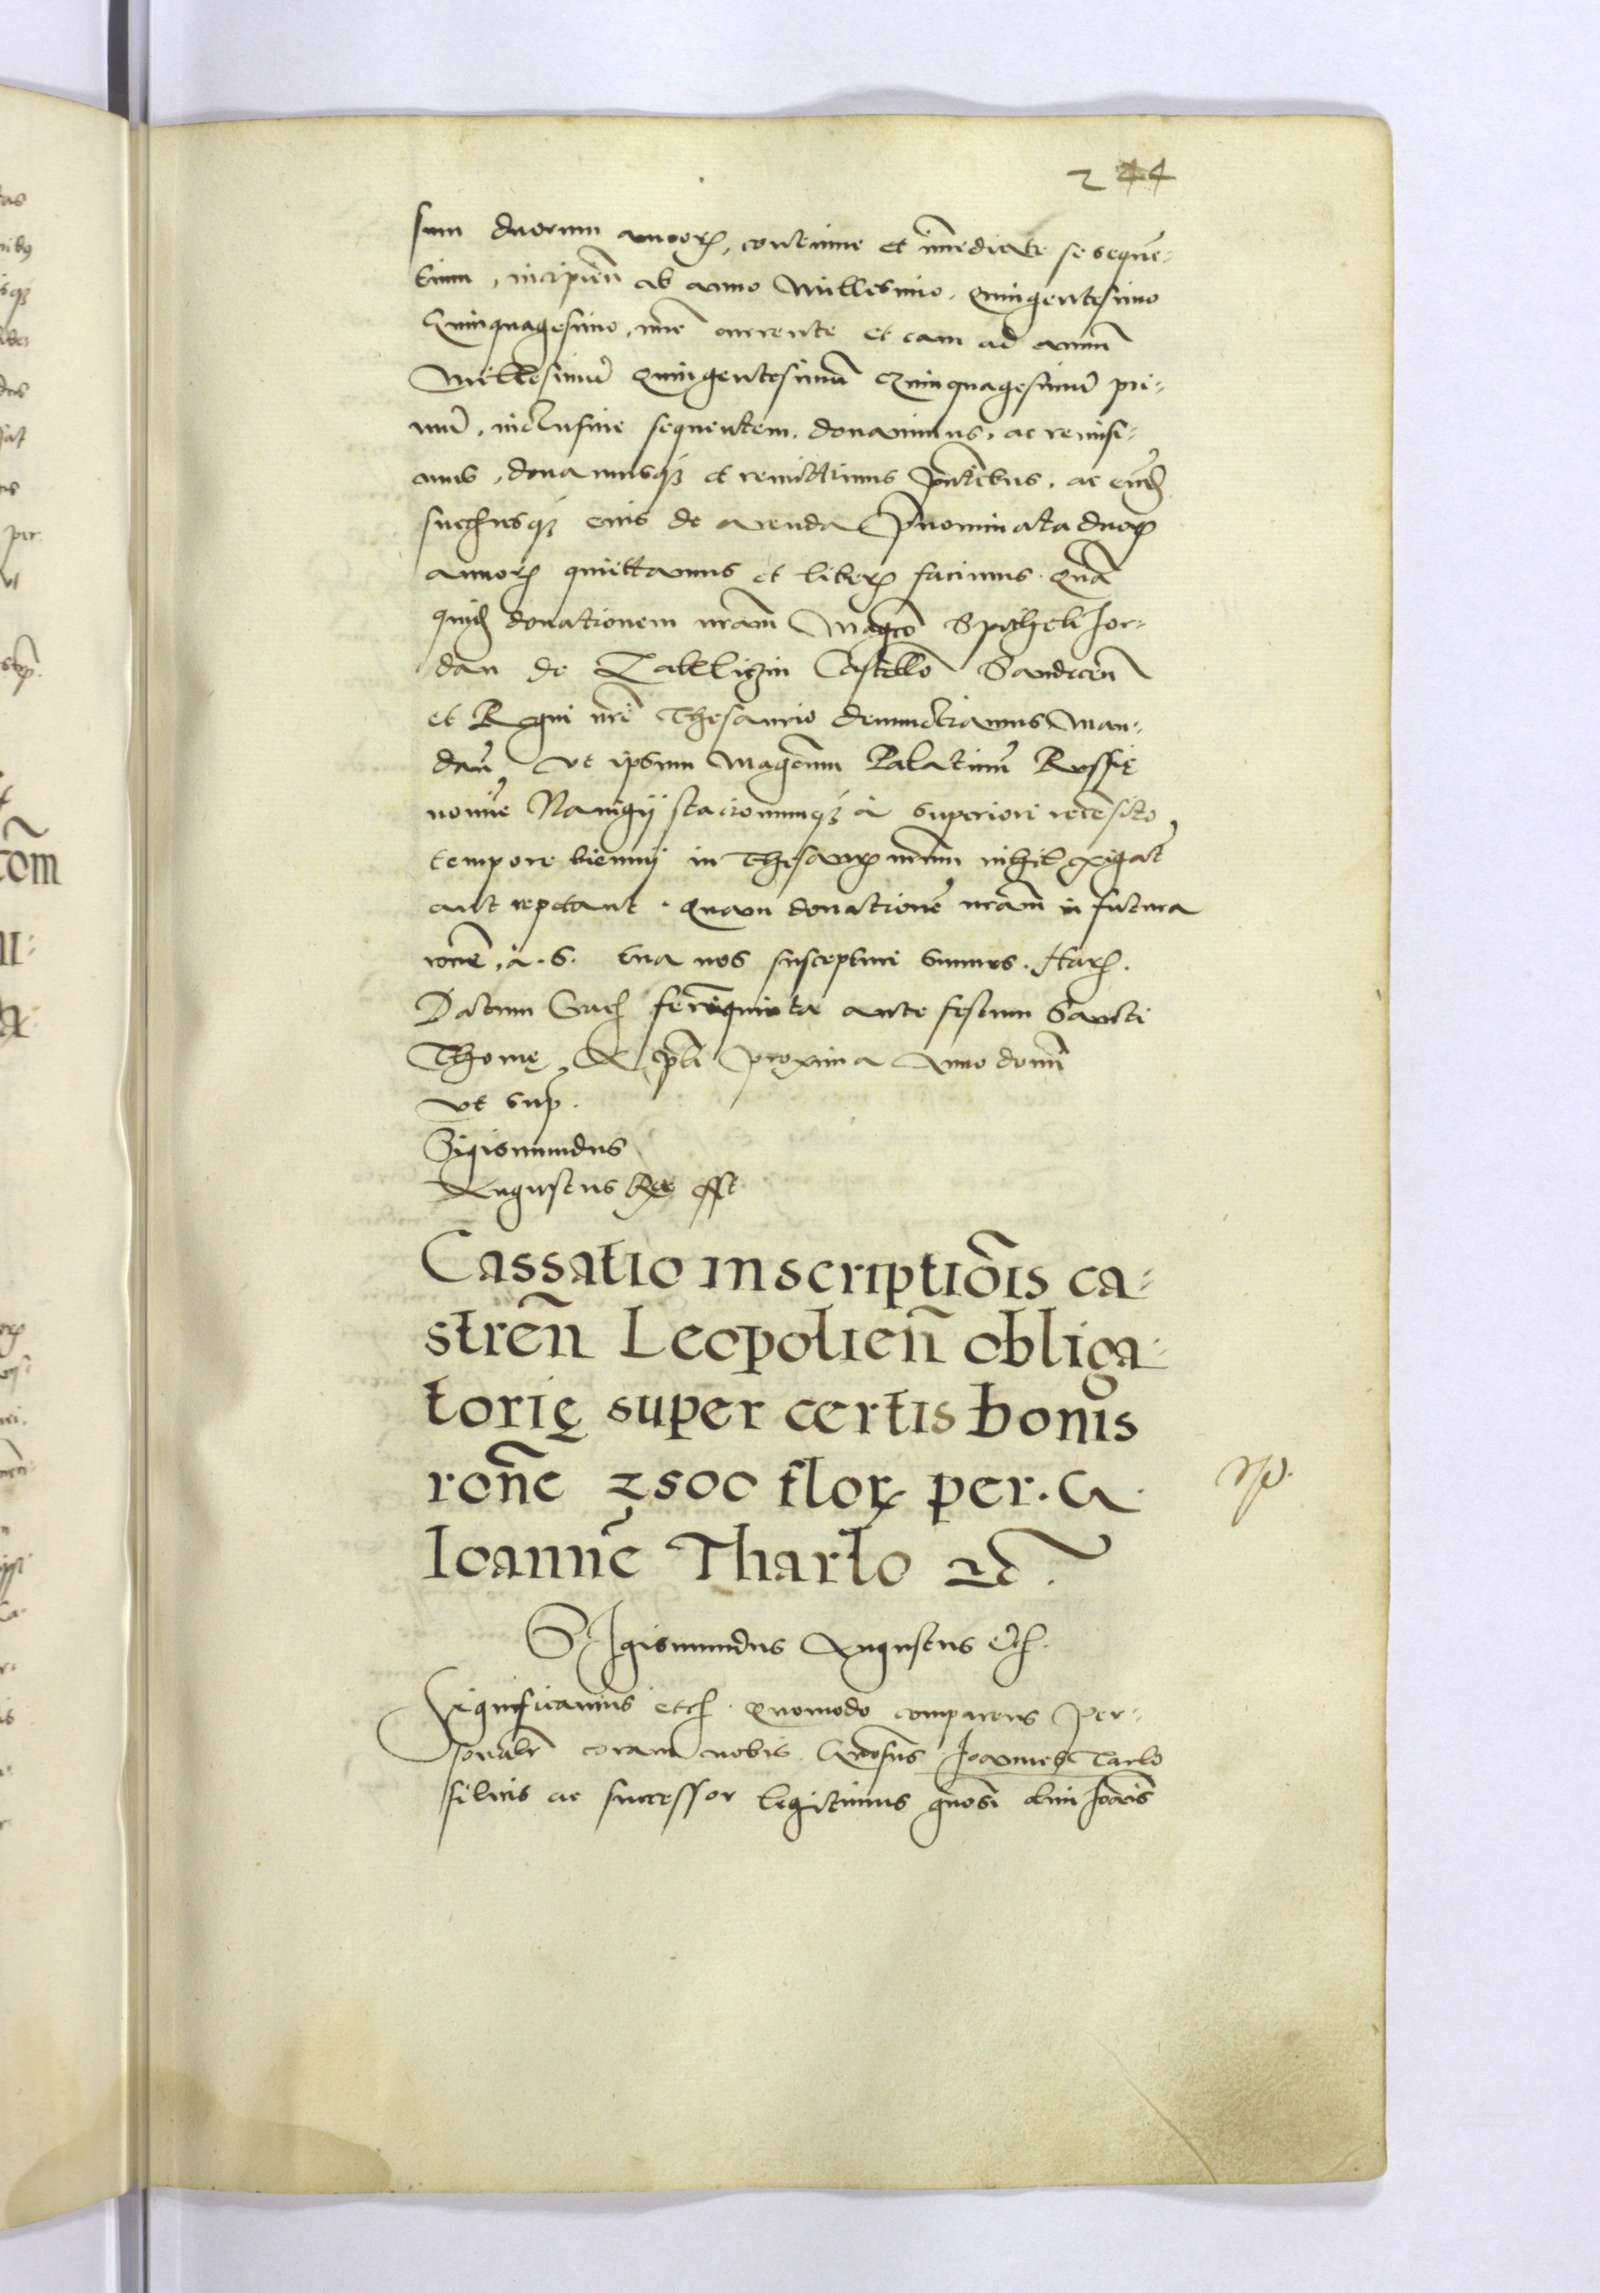 244
sum duorum annorꝝ, continue et im̄ediate se seque᷑-
tium, incipień ab anno Millesimo, Quingentesimo
Quinquagesimo, nũc currente et eam ad annũ
Millesimũ Quingentesimũ Quinquagesimũ pri-
mũ, inclusiue sequentem, donauimus, ac remisi-
mus, donamusqꝫ et remittimus p̃ntibus, ac eund̃
succ̃resqꝫ eius de arenda p̃nominata duoꝝ
annorꝝ quittamus et liberꝝ facimus. Quã
quid̃ donationem nr̃am Mag̃co Spithek Jor-
dan de Zakliczin Castell̃o Sandecen̄
et Regni nr̃i Thesaurio denunctiamus, man-
dan̄ Ut ipsum Mag̃cum Palatinũ Russię
nomĩe Nauigij stacionumqꝫ à superiori recẽsito
tempore biennij in Thesaurꝝ nr̃um nihil exigat
aut repetant. Quam donationẽ nr̃am in futura
rõne, à. S. tua nos suscepturi sumus. Harꝝ.
Datum Crac̃ feria quinta ante festum Sancti
Thomę Ap̃li proxima Anno domĩ
ut sup̃.
Sigismundus
Augustus Rex sst
Cassatio inscriptiõis ca-
streñ Leopolieñ obliga-
torię super certis bonis
rõne 2500 florꝝ per. G.
Ioannẽ Tharlo etc̃.
rp.
SIgismundus Augustus etc̃.
Significamus etc̃. Quomodo comparens per-
sonalr̃ coram nobis. Gñosus Joannes Tarlo
filius ac successor legitimus gñosi olim Joãnis